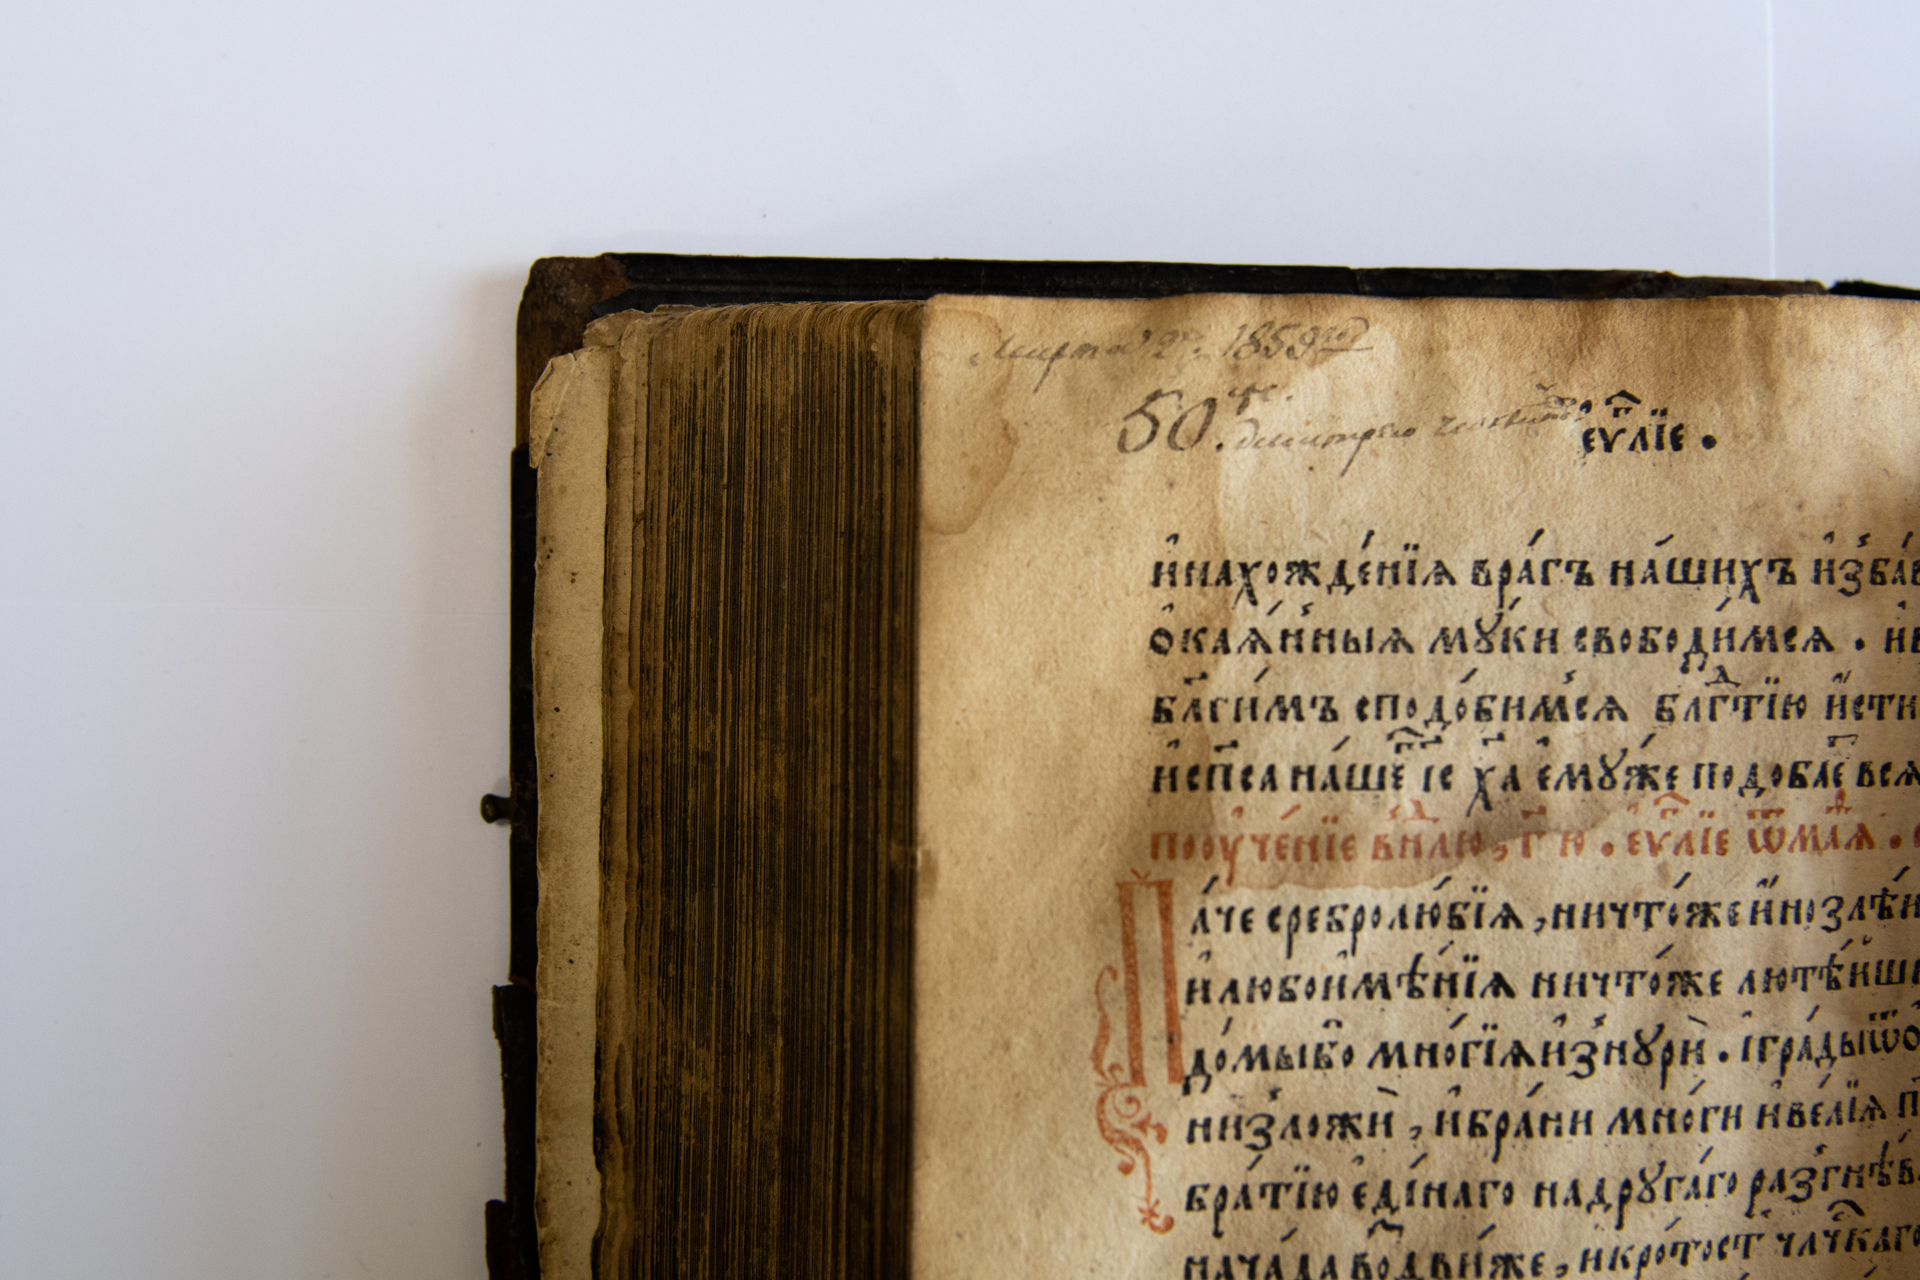 Марта 2го. 1859 год
50.
еѵⷢ҇лїе .
и҆нахожде́нїѧ вра́гъ на́шихъ и҆зба́в
ѻ҆каѧ́нныѧ мꙋ́ки свободи́мсѧ . и҆в
бл҃ги́мъ сподо́бимсѧ бл҃гⷣтїю и҆сти
и҆сп҃са на́шеⷢ҇ і҆с х҃а є҆мꙋ́же подоба́еⷮ всѧ
пооу҆че́нїе внⷣлю, г҃ ю . еѵⷢ҇лїе ѿмаⷴѧ .
Па́че сребролю́бїѧ , ничто́же и҆но злѣ́и
и҆любои҆мѣ́нїѧ ничто́же лютѣ́ишї
до́мыбо мно́гїѧ и҆знꙋри̇̀ . і҆гра́дыѿо
ни́зложи̇̀ , и҆бра́ни мно́ги и҆ве́лїѧ п
бра́тїю є҆ди́наго надрꙋга́го разгнѣв
нача́ла во́движе , и҆кро́тост чл҃чкаго